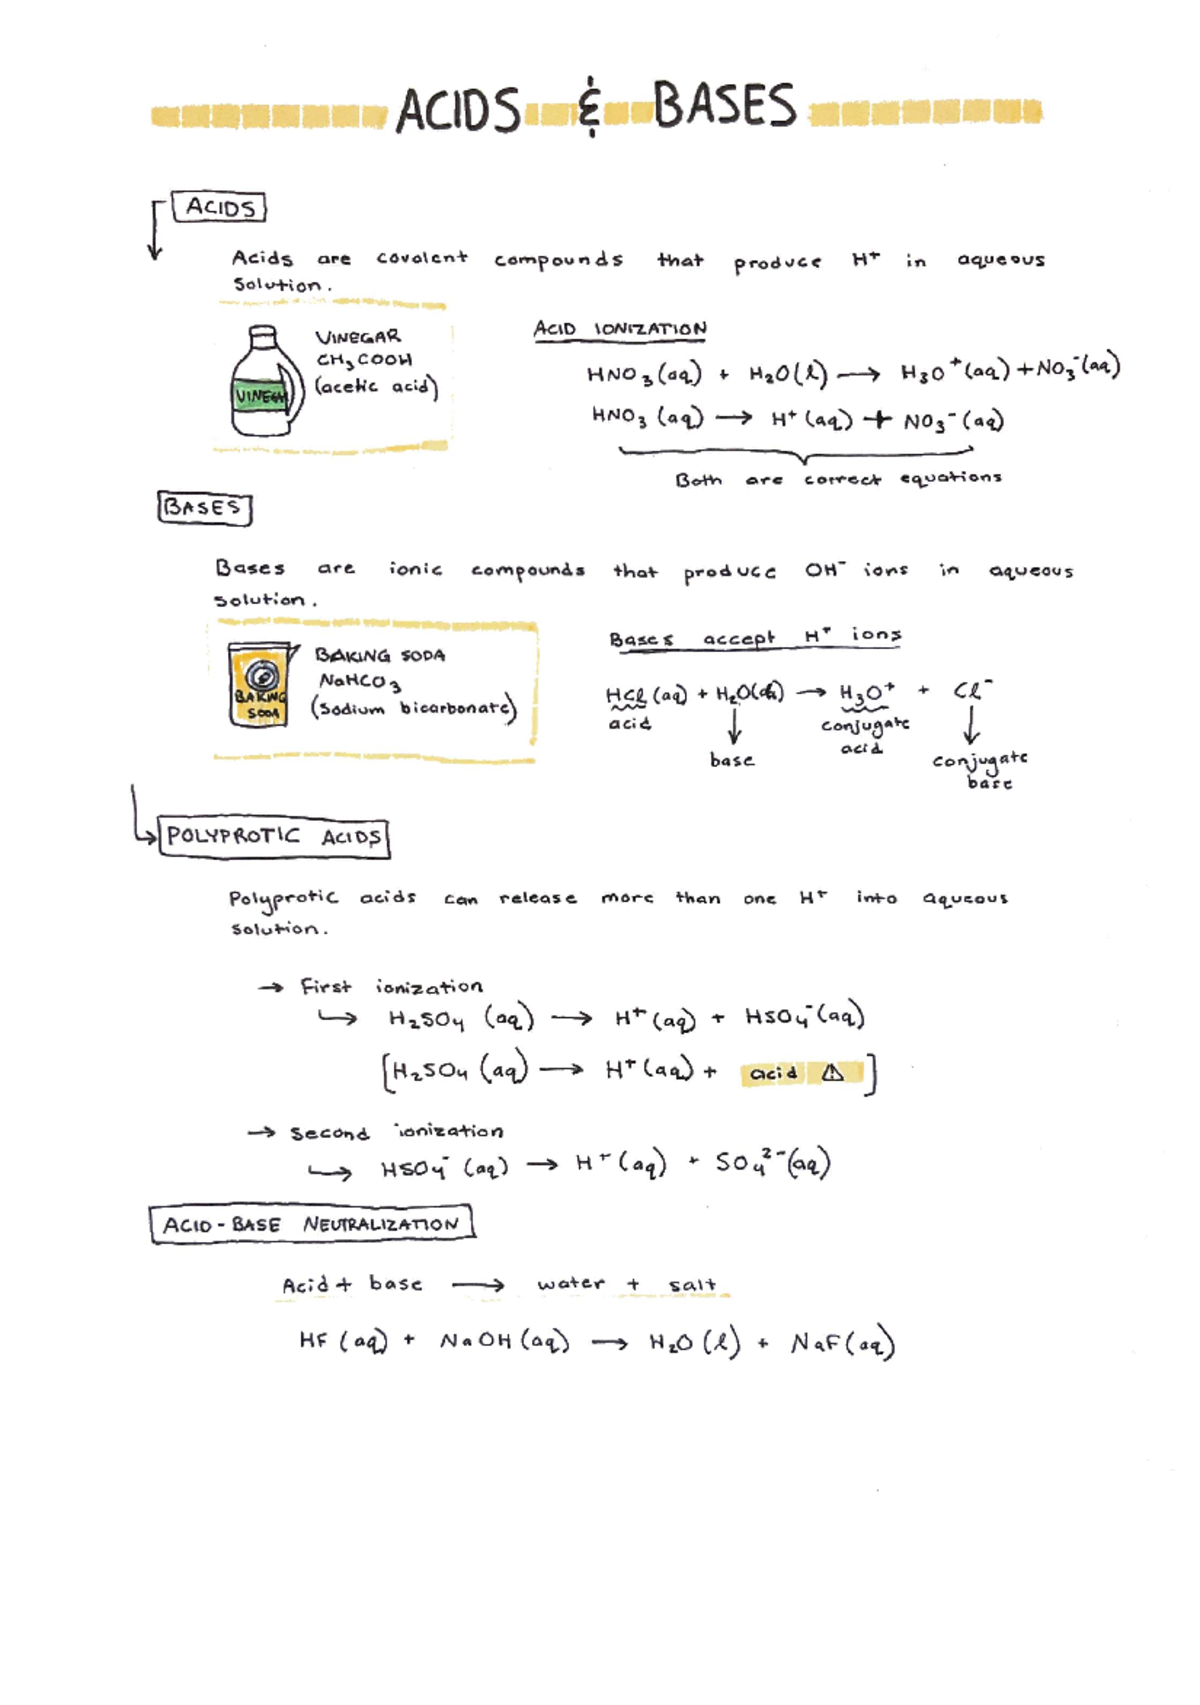 ACIDS & BASES
ACIDS
Acids are covalent compounds that produce H⁺ in aqueous
solution.
VINEGAR
CH₃COOH
(acetic acid)
VINEGAR
ACID IONIZATION
HNO₃(aq) + H₂O(l) → H₃O⁺(aq) + NO₃⁻(aq)
HNO₃(aq) → H⁺(aq) + NO₃⁻(aq)
Both are correct equations
BASES
Bases are ionic compounds that produce OH⁻ ions in aqueous
solution.
BAKING SODA
NaHCO₃
(Sodium bicarbonate)
BAKING
SODA
Bases accept H⁺ ions
HCl(aq) + H₂O(l) → H₃O⁺ + Cl⁻
acid
base
conjugate
acid
conjugate
base
POLYPROTIC ACIDS
Polyprotic acids can release more than one H⁺ into aqueous
solution.
→ First ionization
↳ H₂SO₄ (aq) → H⁺(aq) + HSO₄⁻(aq)
[H₂SO₄ (aq) → H⁺(aq) + acid ⚠]
→ Second ionization
↳ HSO₄⁻ (aq) → H⁺(aq) + SO₄²⁻(aq)
ACID-BASE NEUTRALIZATION
Acid + base → water + salt
HF(aq) + NaOH(aq) → H₂O(l) + NaF(aq)